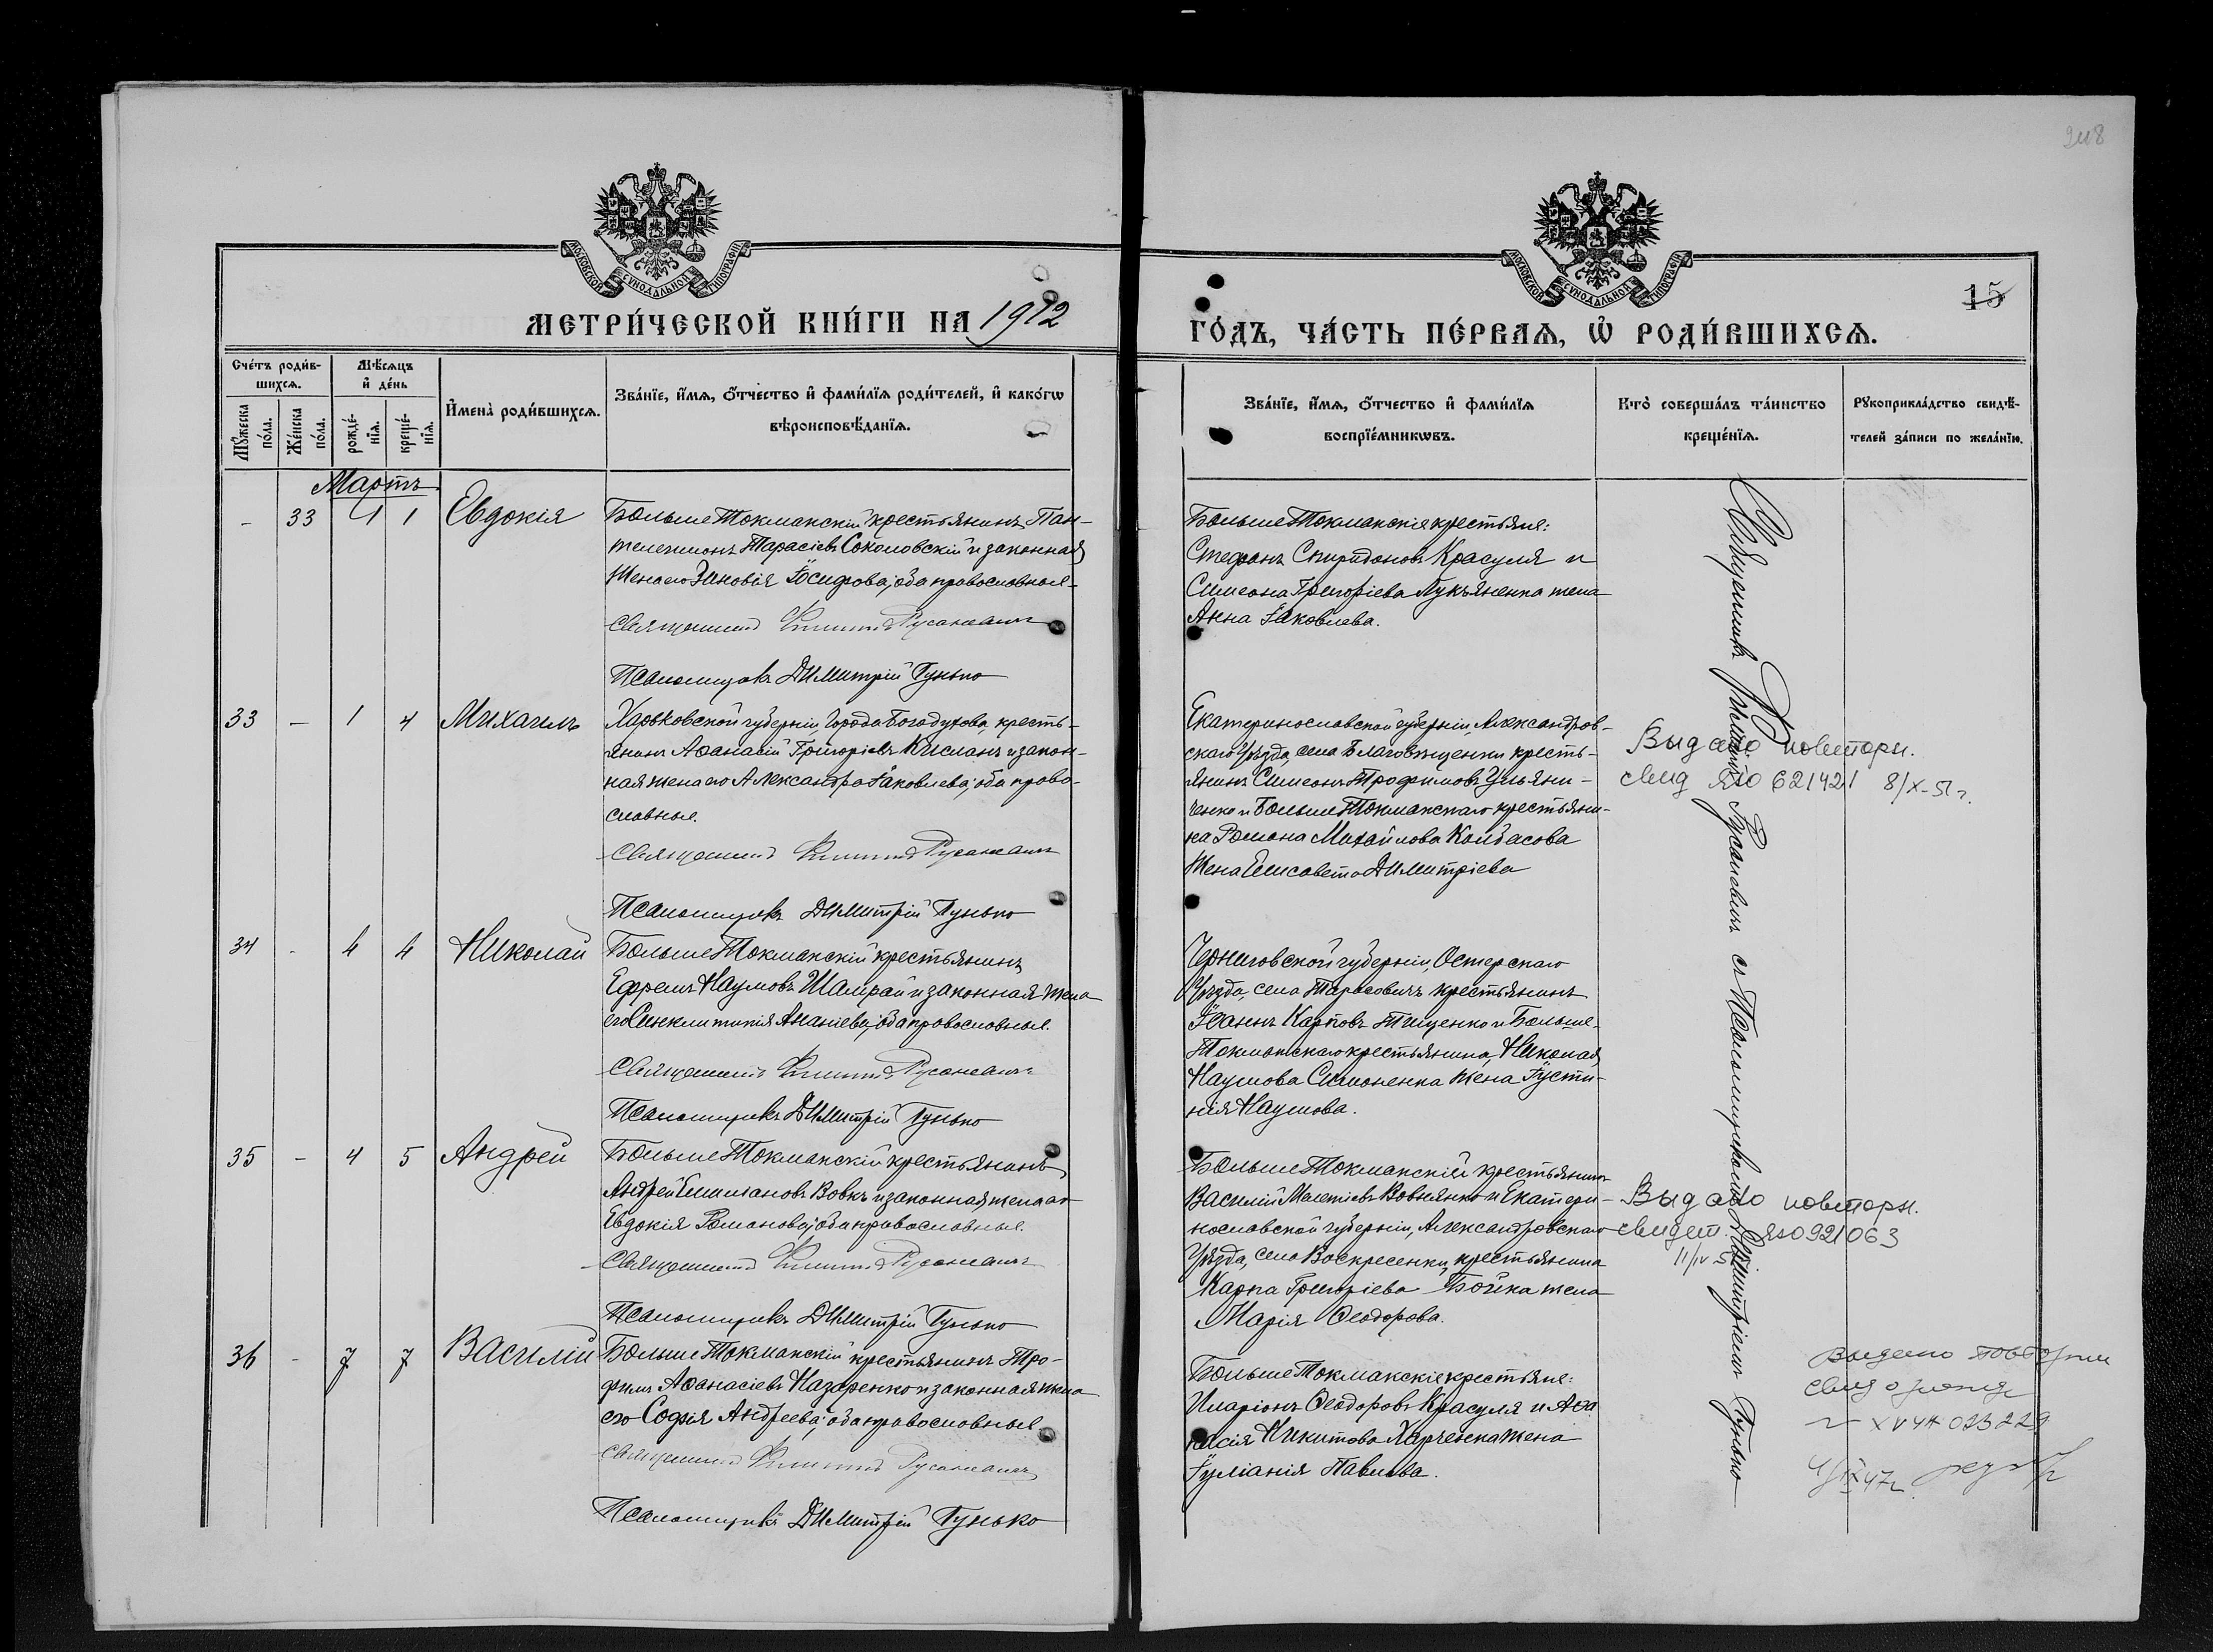 248
МОСКОВСКОЙ СѴНОДАЛЬНОЙ ТИПОГРАФІИ
МОСКОВСКОЙ СѴНОДАЛЬНОЙ ТИПОГРАФІИ
15
МЕТРИ́ЧЕСКОЙ КНИ́ГИ НА 1912
ГО́ДЪ, ЧА́СТЬ ПЕ́РВАѦ, Ѡ҆ РОДИ́ВШИХСѦ.
Сче́тъ роди́в-
шихсѧ.
Мѣ́сѧцъ
и҆ де́нь
Мꙋ́жеска
по́ла.
Же́нска
по́ла.
рожде́-
нїѧ.
креще́-
нїѧ.
И҆мена̀ роди́вшихсѧ.
Зва́нїе, и҆́мѧ, ѻ҆́тчество и҆ фами́лїѧ роди́телей, и҆ како́гѡ
вѣроисповѣ́данїѧ.
Зва́нїе, и҆́мѧ, ѻ҆́тчество и҆ фами́лїѧ
воспрїе́мникѡвъ.
Кто̀ соверша́лъ та́инство
креще́нїѧ.
Рꙋкоприкла́дство свидѣ́-
телей за́писи по жела́нїю.
Мартъ
- 33 1 1 Евдокія
Больше Токмакскій крестьянинъ Пан-
телеимонъ Тарасіевъ Соколовскій и законная
жена его Зиновія Іосифова, оба православные
Священникъ Русаневичъ
Псаломщикъ Димитрій Гунько
Больше Токмакскіе крестьяне:
Стефанъ Спиридоновъ Красуля и
Симеона Григоріева Лукьяненка жена
Анна Іаковлева.
33 - 1 4 Михаилъ
Харьковской губерніи, города Богодухова, кресть-
янинъ Аѳанасій Григоріевъ Кисланъ и закон-
ная жена его Александра Іаковлева, оба право-
славные.
Священникъ Русаневичъ
Псаломщикъ Димитрій Гунько
Екатеринославской губерніи, Александров-
скаго Уѣзда, села Благовѣщенки кресть-
янинъ Симеонъ Трофимовъ Ульяни-
ченко и Больше Токмакскаго крестьяни-
на Романа Михайлова Колбасова
жена Елисавета Димитріева
Выдано повторн.
свид ЯЮ 621421 8/X-51 г.
34 - 4 4 Николай
Больше Токмакскій крестьянинъ
Ефремъ Наумовъ Шамрай и законная жена
его Синклитикія Ананіева, оба православные.
Священникъ Русаневичъ
Псаломщикъ Димитрій Гунько
Черниговской губерніи, Остерскаго
Уѣзда, села Тарасовичъ крестьянинъ
Іоаннъ Карповъ Тищенко и Больше-
Токмакскаго крестьянина, Николая
Наумова Симоненка жена Іусти-
нія Наумова.
35 - 4 5 Андрей
Больше Токмакскій крестьянинъ
Андрей Емиліановъ Вовкъ и законная жена его
Евдокія Романова, оба православные.
Священникъ Русаневичъ
Псаломщикъ Димитрій Гунько
Больше Токмакскій крестьянинъ
Василій Мелетіевъ Вовнянко и Екатери-
нославской губерніи, Александровскаго
Уѣзда, села Воскресенки, крестьянина
Карпа Григоріева Бойка жена
Марія Ѳеодорова.
Выдано повторн.
свидет. ЯЮ 921063
11/IV
36 - 7 7 Василій
Больше Токмакскій крестьянинъ Тро-
фимъ Аѳанасіевъ Назаренко и законная жена
его Софія Андреева, оба православные.
Священникъ Русаневичъ
Псаломщикъ Димитрій Гунько
Больше Токмакскіе крестьяне:
Иларіонъ Ѳеодоровъ Красуля и Аѳа
насія Никитова Харченка жена
Іуліанія Павлова.
Выдано повторни
свид о рожд
023229
Священникъ Русаневичъ съ Псаломщикомъ Димитріемъ Гунько